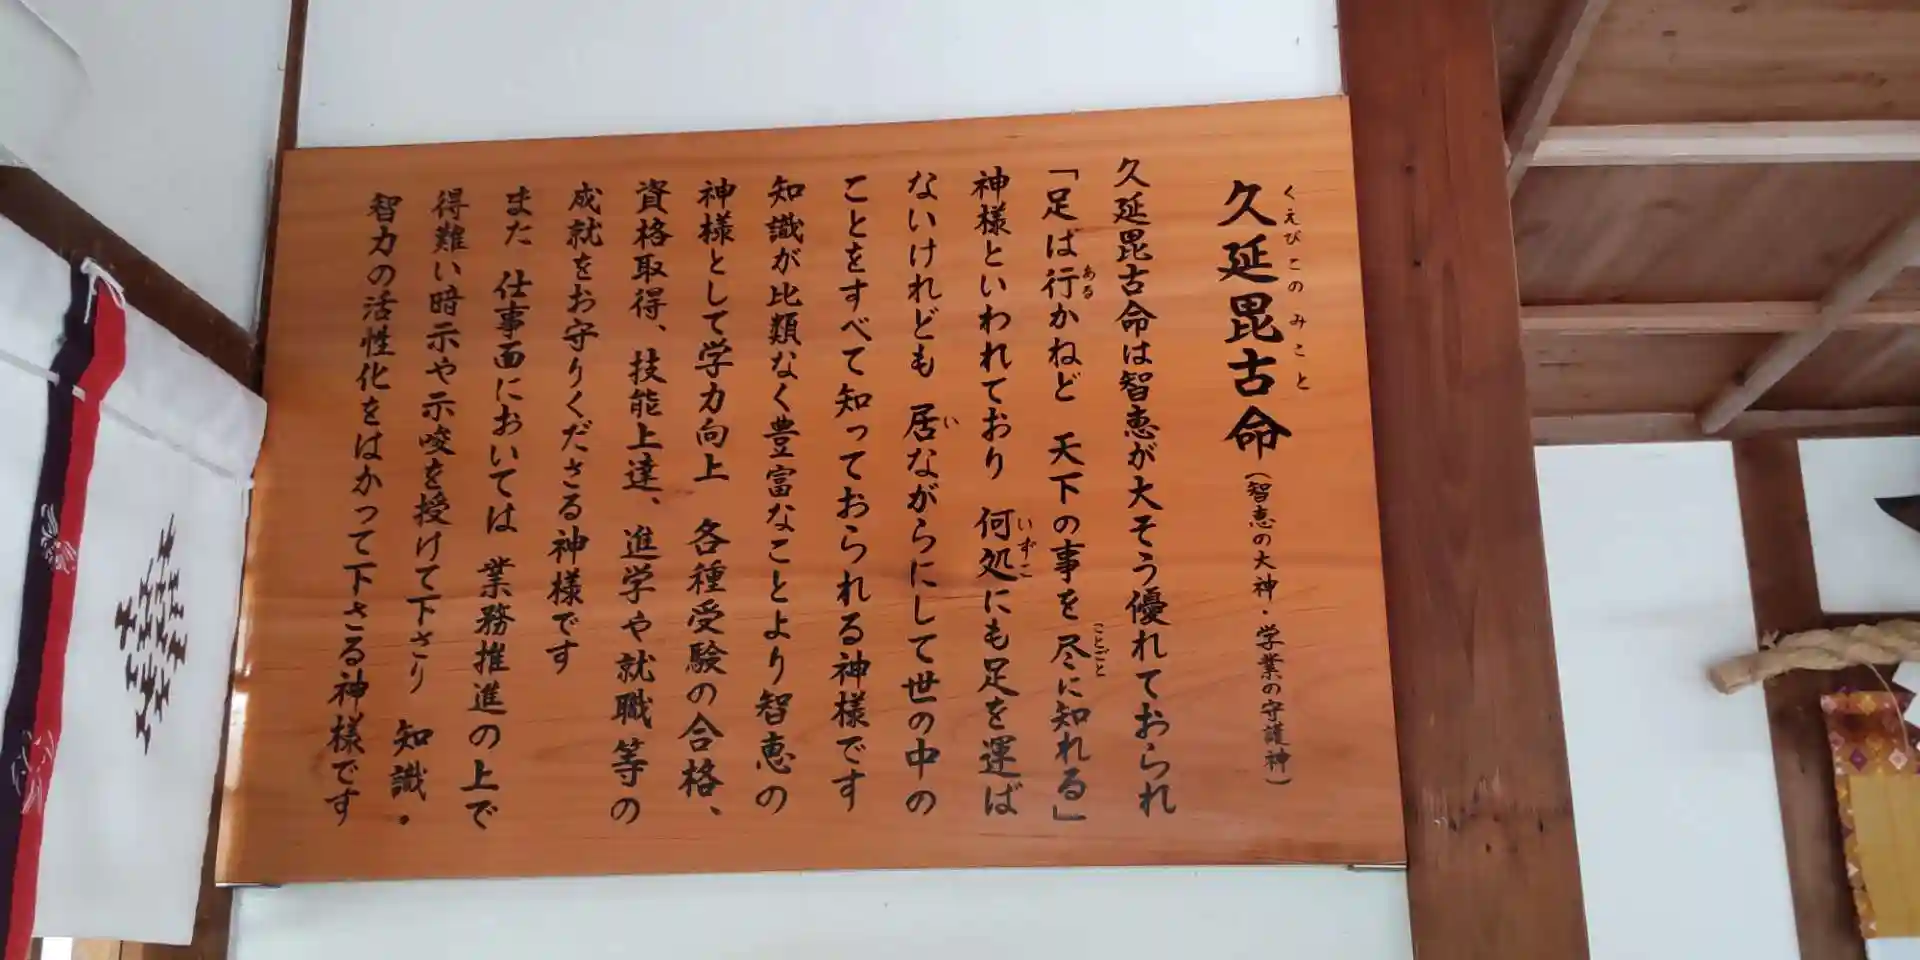 久延毘古命（智恵の大神・学業の守護神）
くえびこのみこと
久延毘古命は智恵が大そう優れておられ
「足は行かねど 天下の事を尽に知れる」
ある
ことごと
神様といわれており 何処にも足を運ば
いずこ
ないけれども 居ながらにして世の中の
い
ことをすべて知っておられる神様です
知識が比類なく豊富なことより智恵の
神様として学力向上 各種受験の合格、
資格取得、技能上達、進学や就職等の
成就をお守りくださる神様です
また 仕事面においては 業務推進の上で
得難い暗示や示唆を授けて下さり 知識・
智力の活性化をはかって下さる神様です